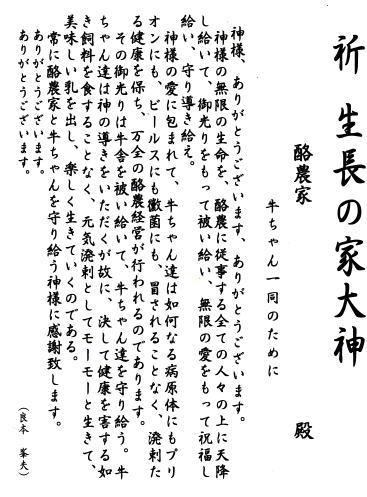 祈 生長の家大神
酪農家　　　　　殿
牛ちゃん一同のために
神様、ありがとうございます、ありがとうございます。
神様の無限の生命を、酪農に従事する全ての人々の上に天降
し給いて、御光りをもって被い給い、無限の愛をもって祝福し
給い、守り導き給え。
神様の愛に包まれて、牛ちゃん達は如何なる病原体にもプリ
オンにも、ビールスにも黴菌にも、冒されることなく、溌剌た
る健康を保ち、万全の酪農経営が行われるのであります。
その御光りは牛舎を被い給いて、牛ちゃん達を守り給う。牛
ちゃん達は神の導きをいただくが故に、決して健康を害する如
き飼料を食することなく、元気溌剌としてモーモーと生きて、
美味しい乳を出し、楽しく生きていくのである。
常に酪農家と牛ちゃんを守り給う神様に感謝致します。
ありがとうございます。
ありがとうございます。
（良本　峯夫）